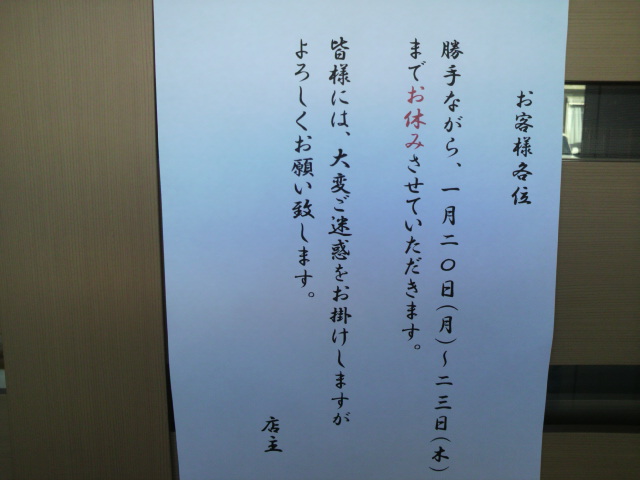 お客様各位
勝手ながら、一月二〇日(月)~二三日(木)
までお休みさせていただきます。
皆様には、大変ご迷惑をお掛けしますが
よろしくお願い致します。
店主